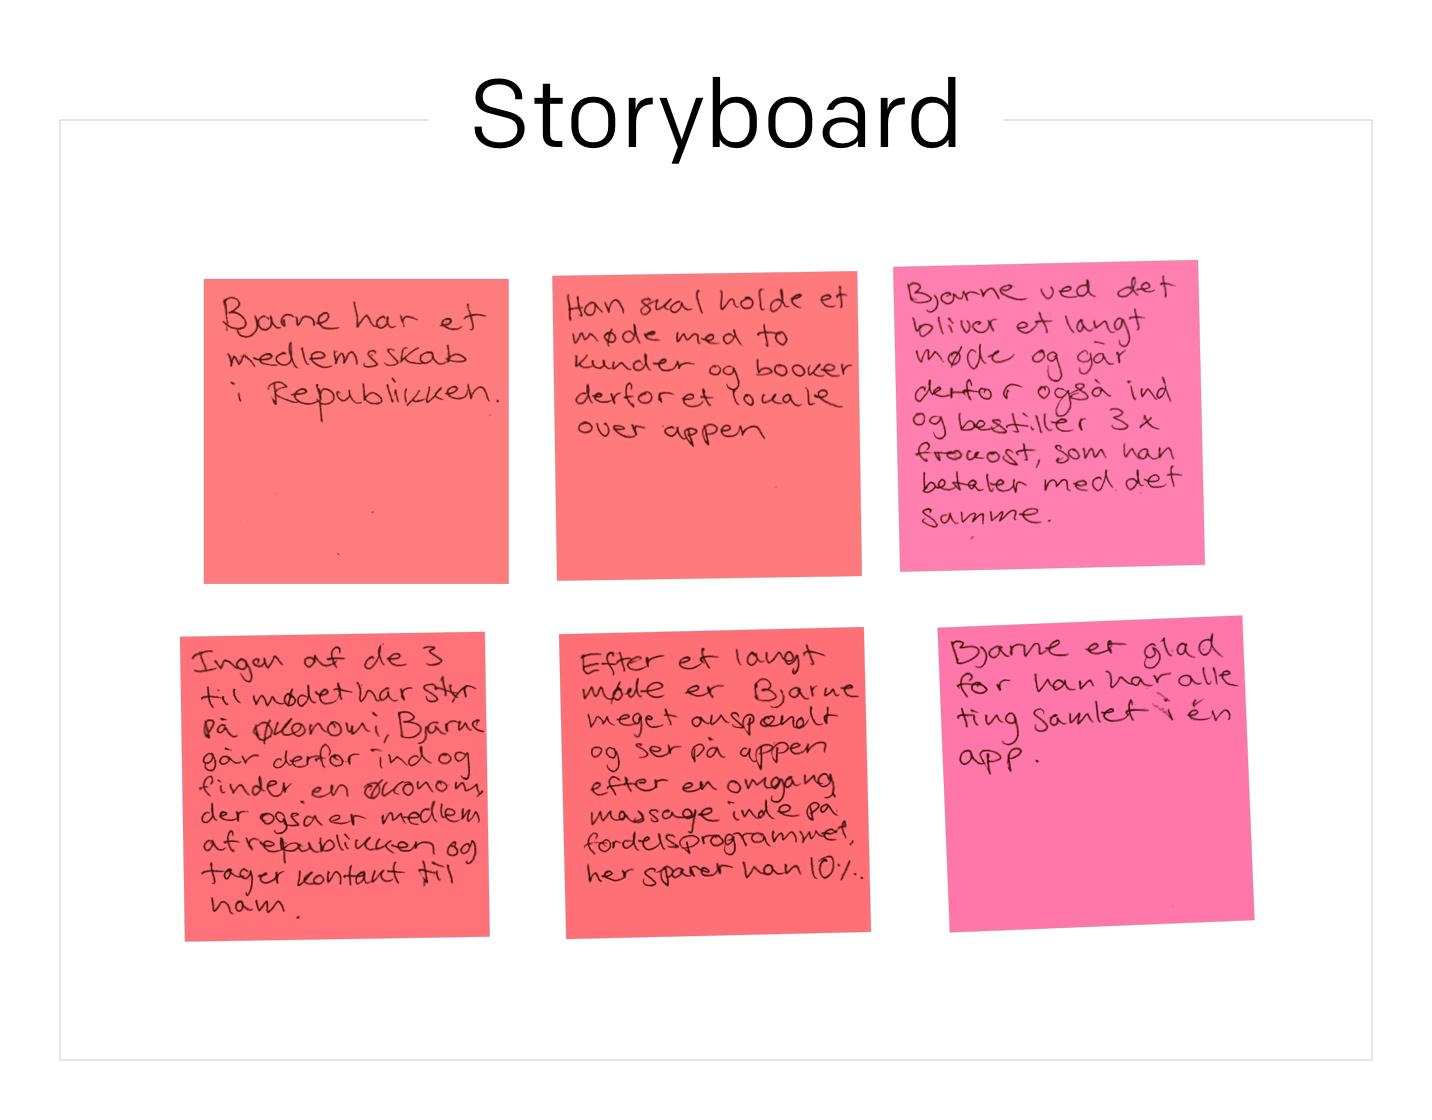 Storyboard
Bjarne har et
medlemsskab
i Republikken.
Han skal holde et
møde med to
kunder og booker
derfor et lokale
over appen
Bjarne ved det
bliver et langt
møde og går
derfor også ind
og bestiller 3 x
frokost, som han
betaler med det
samme.
Ingen af de 3
til mødet har styr
på økonomi, Bjarne
går derfor ind og
finder en økonom,
der også er medlem
af republikken og
tager kontakt til
ham.
Efter et langt
møde er Bjarne
meget anspændt
og ser på appen
efter en omgang
massage inde på
fordelsprogrammet,
her sparer han 10%.
Bjarne er glad
for han har alle
ting samlet i én
app.